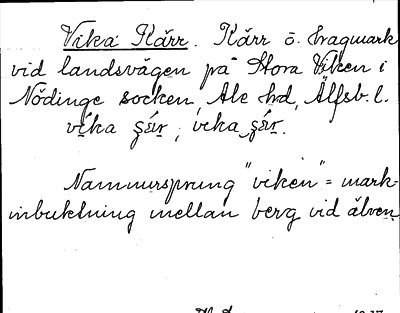 Vika Kärr. Kärr o. hragmark
vid landsvägen på Stora Viken i
Nödinge socken, Ale hd, Älfsb. l.
vika , veka
Namnursprung "viken" = mark-
inbuktning mellan berg vid älven.